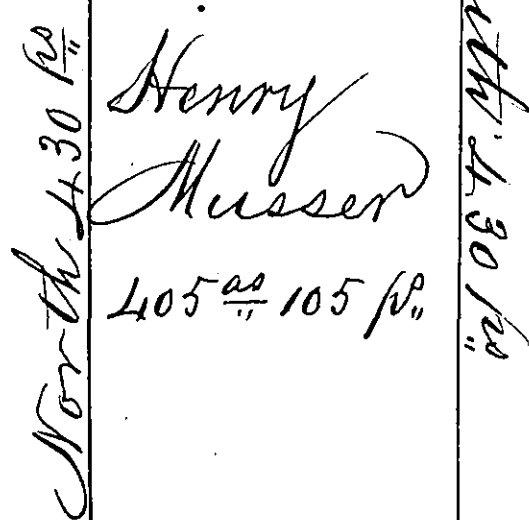 North 430 ps
Henry
Musser
405 as 105 ps
430 ps